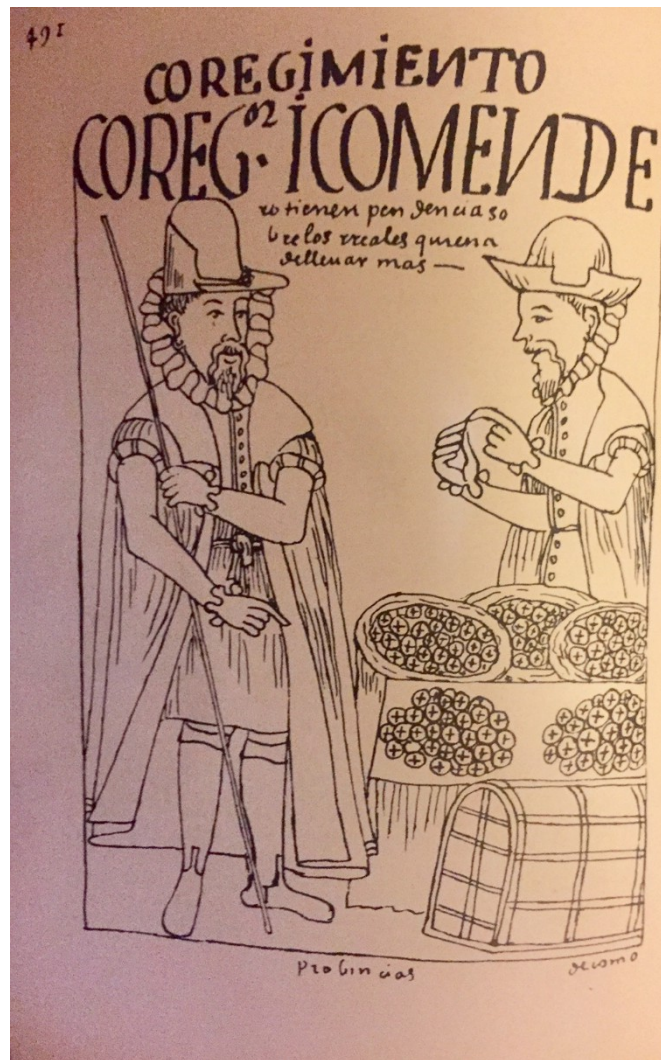 491
COREGIMIENTO
COREG.or ICOMENDE
ro tienen pendencia so
bre los rreales quien a
de lleuar mas —
Probincias
de como